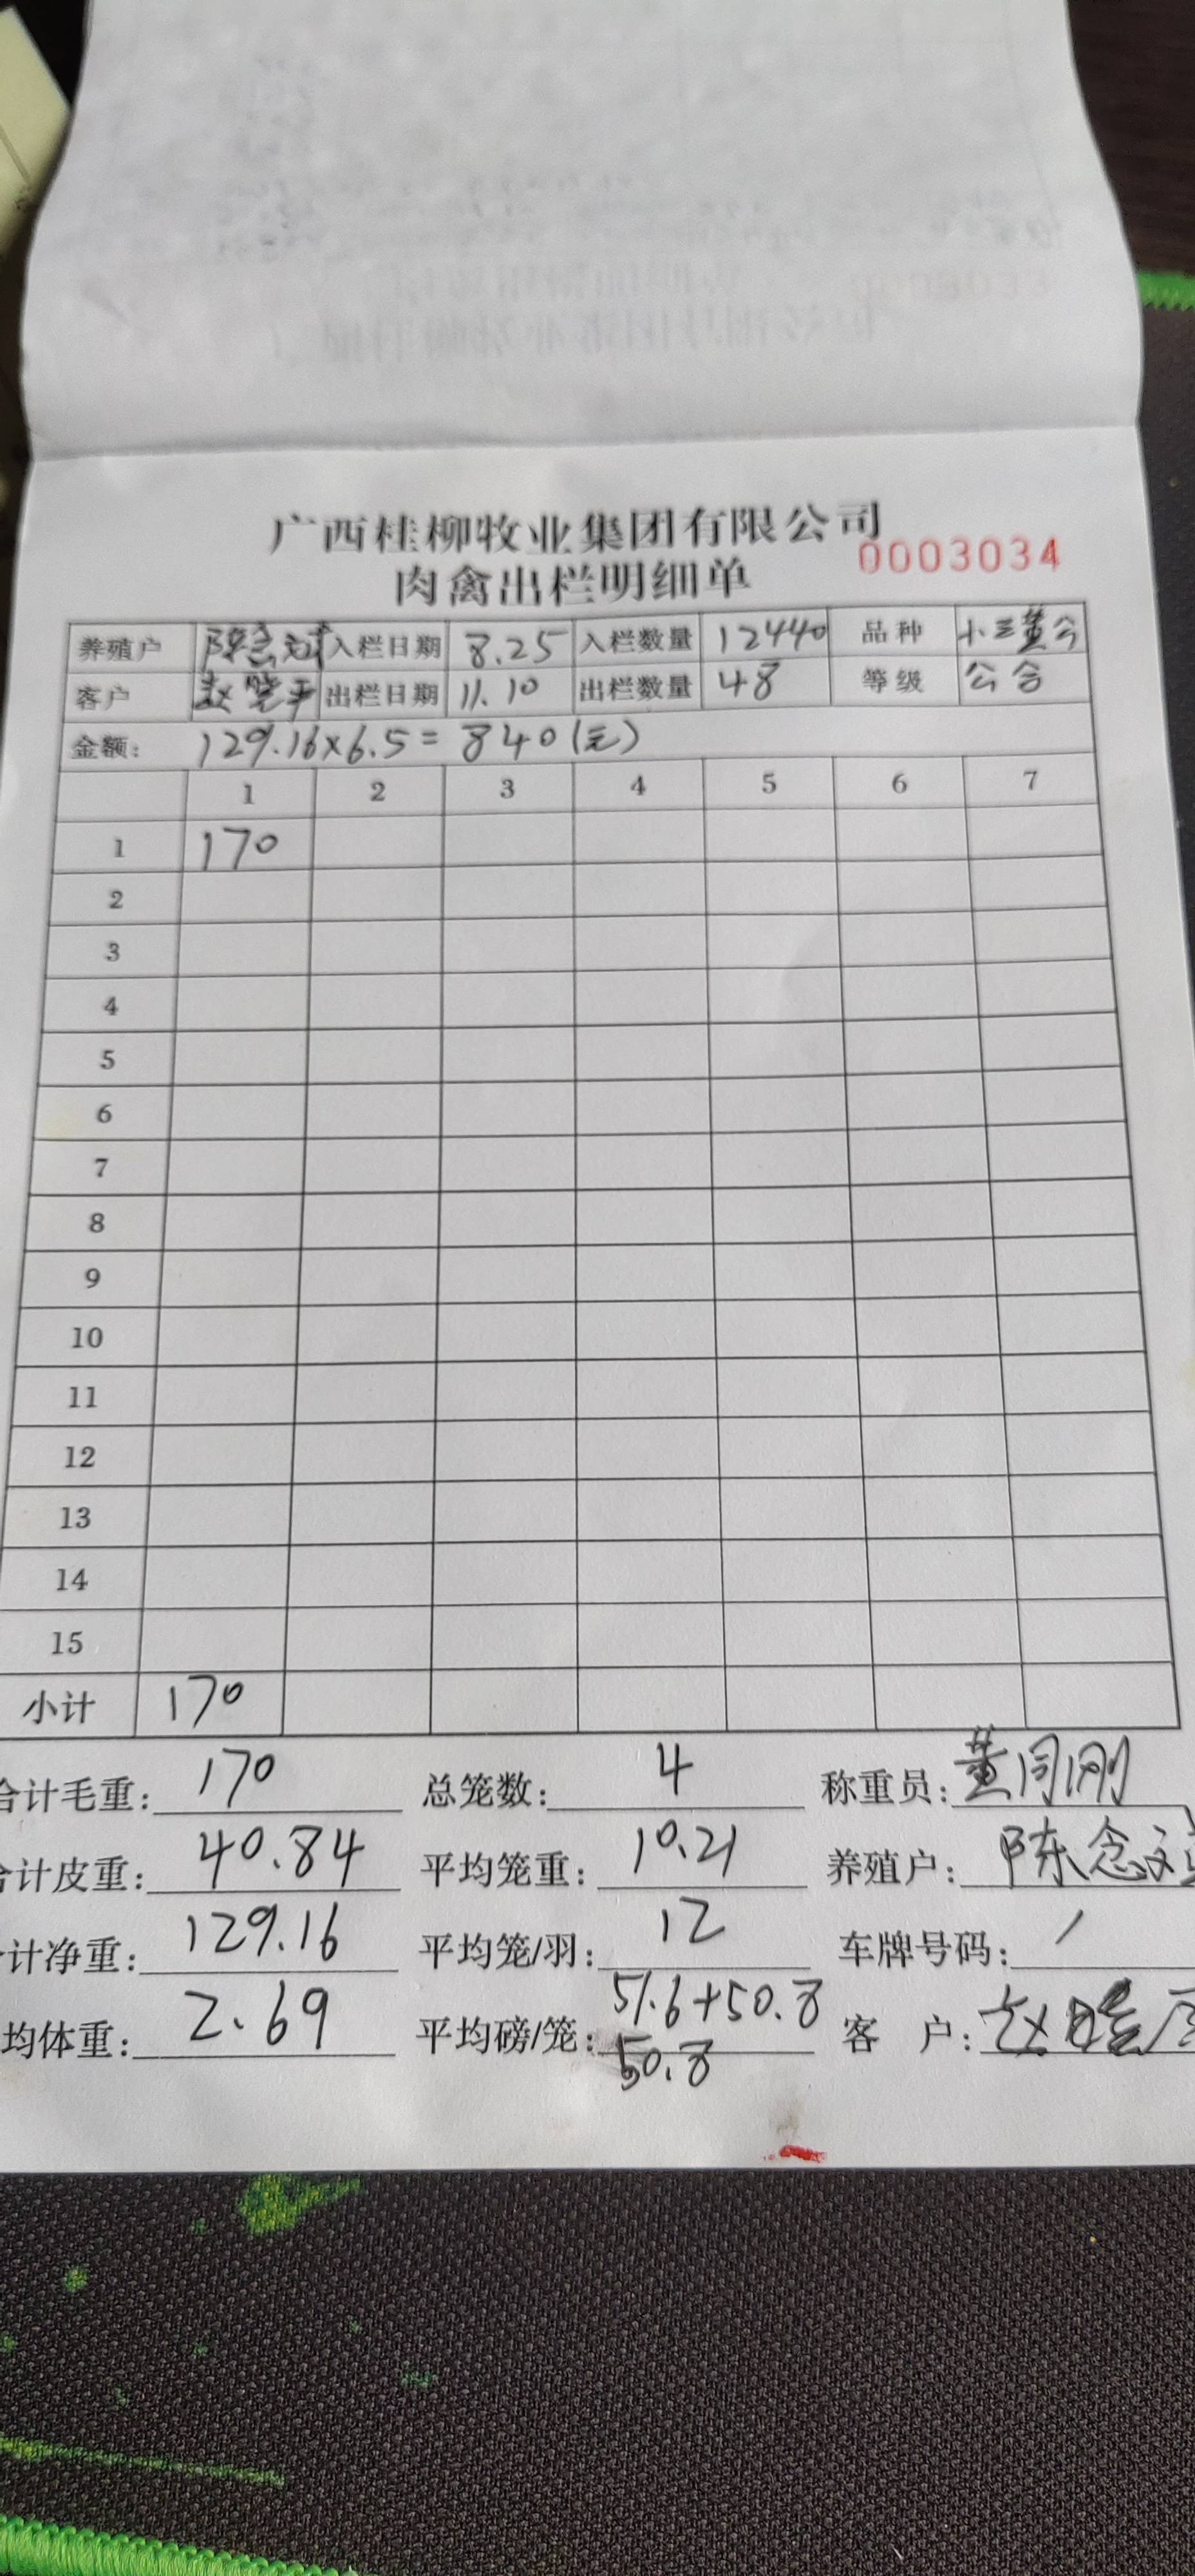 广西桂柳牧业集团有限公司
0003034
肉禽出栏明细单
养殖户 陈念斌 入栏日期 8.25 入栏数量 12440 品种 小三黄公
客户 赵 平 出栏日期 11.10 出栏数量 48 等级 公合
金额: 129.16×6.5=840(元)
1 2 3 4 5 6 7
1 170
2
3
4
5
6
7
8
9
10
11
12
13
14
15
小计 170
合计毛重: 170 总笼数: 4 称重员: 董同刚
计皮重: 40.84 平均笼重: 10.21 养殖户: 陈念
计净重: 129.16 平均笼/羽: 12 车牌号码: /
均体重: 2.69 平均磅/笼: 51.6+50.8 客 户: 赵
50.8